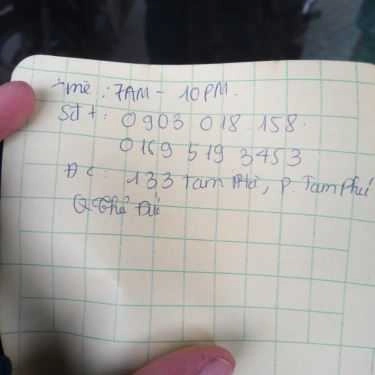 Time : 7AM - 10PM.
Sđt : 0903 018 158.
0169 519 3453
ĐC : 133 Tam Hà, P. Tam Phú
Q Thủ Đức